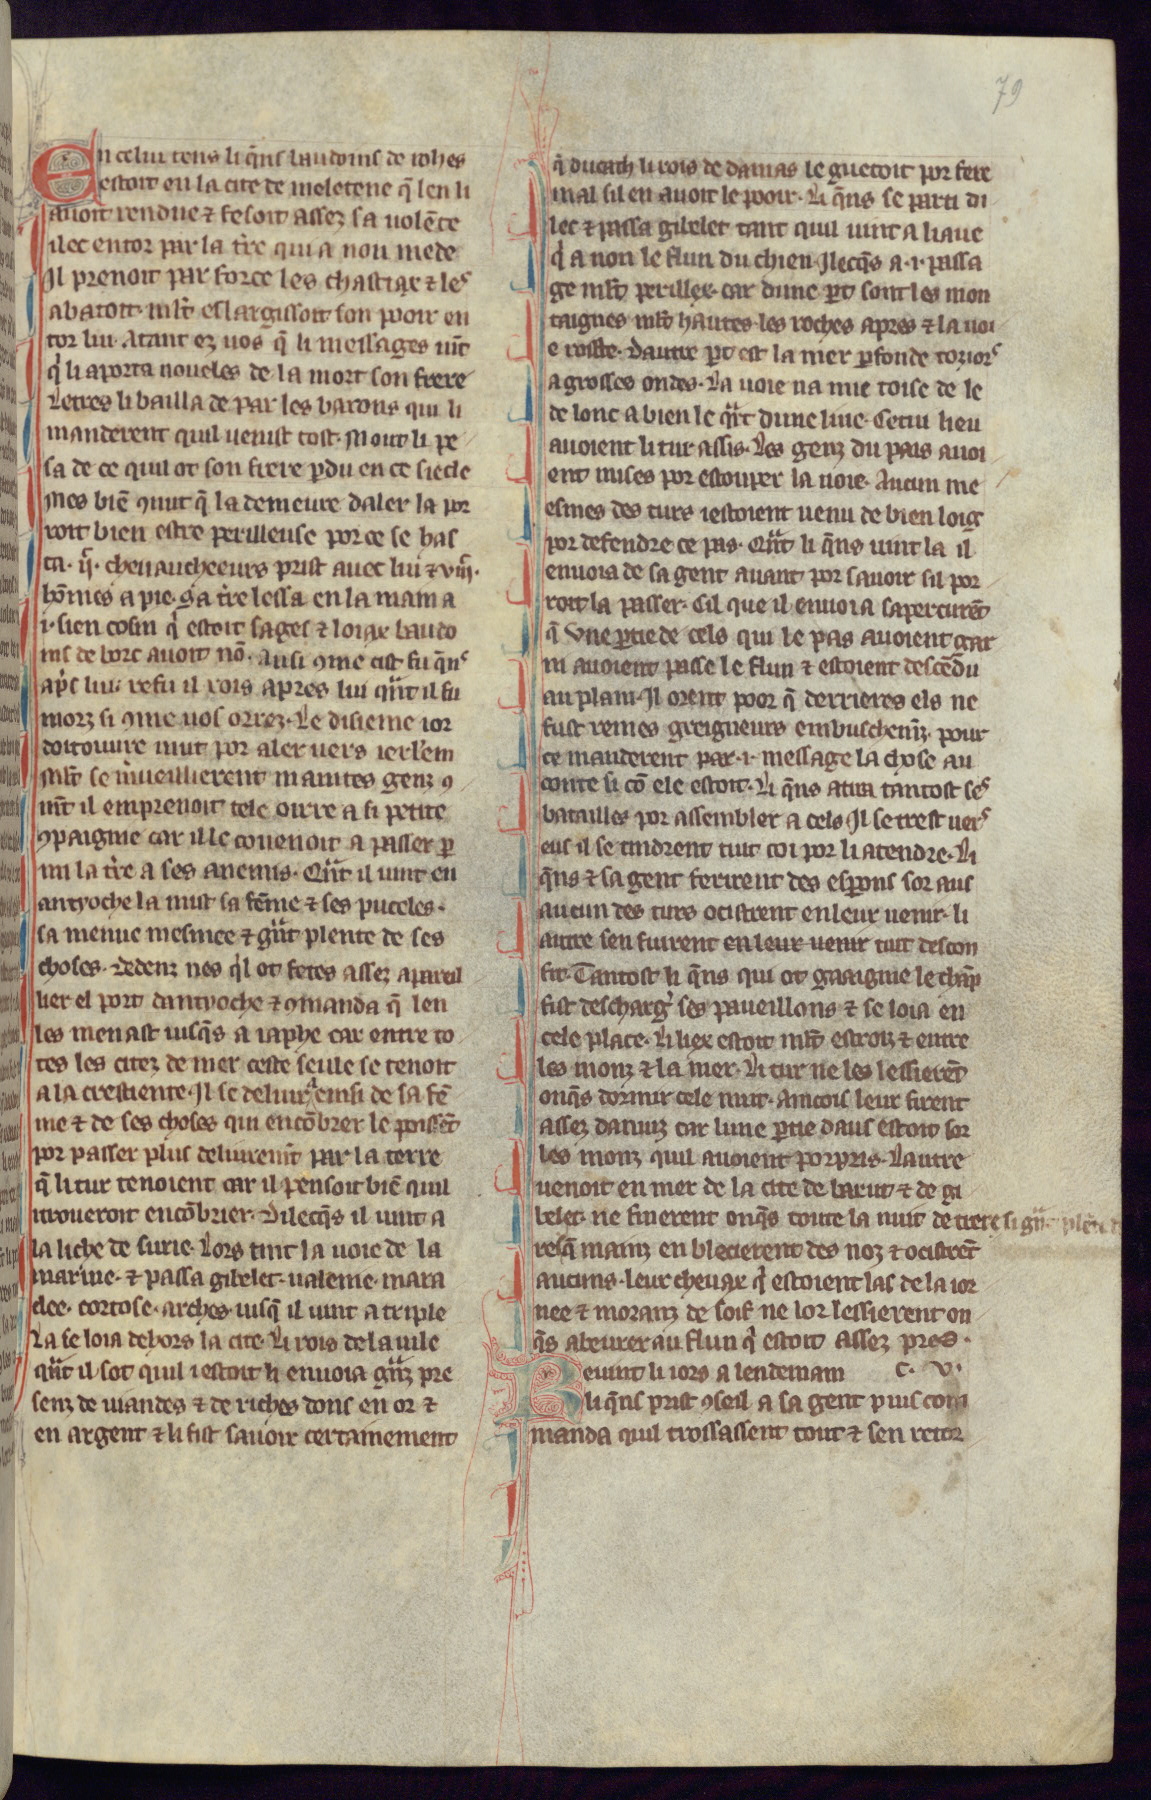 79
En celui tens li q̃ns baudoins de rohes
estoit en la cite de meletene q̃ len li
auoit rendue ⁊ fesoit assez sa uolẽte
ilec entor par la tr̃e qui a non mede
Il prenoit par force les chastiax ⁊ les
abatoit ml̃t eslargissoit son pooir en
tor lui. Atant ez uos q̃ li messages uĩt
q̾ li aporta noueles de la mort son frere
Letres li bailla de par les barons qui li
manderent quil uenist tost. Mout li pe
sa de ce quil ot son frere ꝑdu en ce siecle
Mes biẽ ꝯnut q̃ la demeure daler la por
roit bien estre perilleuse por ce se has
ta. ij. cheuaucheeurs prist auec lui ⁊ viij.
hõmes a pie. sa tr̃e lessa en la main a
.i. sien cosin q̾ estoit sages ⁊ loiax baudo
ins de borc auoit nõ. Ausi ꝯme cist fu q̃ns
ap̃s lui. refu il rois apres lui q̃nt il fu
morz si ꝯme uos orrez. Le disieme ior
doitouure mut por aler uers ierl̃em
Ml̃t se m̾ueillierent maintes genz ꝯ
m̃t il emprenoit tele oirre a si petite
ꝯpaignie car il le couenoit a passer ꝑ
mi la tr̃e a ses anemis. Q̃nt il uint en
antyoche la mist sa fẽme ⁊ ses puceles.
sa menue mesniee ⁊ g̃nt plente de ses
choses. Dedenz nes q̾l ot fetes assez apareil
lier el port dantyoche ⁊ ꝯmanda q̃ len
les menast iusq̃s a iaphe car entre to
tes les citez de mer ceste seule se tenoit
a la crestiente. Il se deliura einsi de sa fẽ
me ⁊ de ses choses qui encõbrer le poissẽt
por passer plus deliurem̃t par la terre
q̃ li tur tenoient car il pensoit biẽ quil
i troueroit encõbrier. Dilecq̃s il uint a
la liche de surie. Lors tint la uoie de la
marine. ⁊ passa gibelet. ualenie. mara
clee. tortose. arches. iusq̃ il uint a triple
La se loia dehors la cite. Li rois de la uile
q̃nt il sot quil i estoit li enuoia g̃nz pre
senz de uiandes ⁊ de riches dons en or ⁊
en argent ⁊ li fist sauoir certainement
q̾ ducath li rois de damas le guetoit por fere
mal sil en auoit le pooir. Li q̃ns se parti di
lec ⁊ passa gibelet tant quil uint a liaue
q̾ a non le flun du chien. Ilecq̃s a .i. passa
ge ml̃t perillex. car dune ꝑt sont les mon
taignes ml̃t hautes. les roches apres ⁊ la uoi
e roiste. Dautre ꝑt est la mer ꝑfonde toziors
a grosses ondes. La uoie na mie toise de le
de lonc a bien le q̃rt dune liue. Cetui lieu
auoient li tur assis. Les genz du pais auoi
ent mises por estouper la uoie. Aucun me
esmes des turs i estoient uenu de bien loig
por defendre ce pas. Q̃nt li q̃ns uint la il
enuoia de sa gent auant por sauoir sil por
roit la passer. Cil que il enuoia saperturẽt
q̃ vne ꝑtie de cels qui le pas auoient gar
ni auoient passe le flun ⁊ estoient descẽdu
au plain. Il orent poor q̃ derrieres els ne
fust remes greigneurs embuschem̃z. pour
ce manderent par .i. message la chose au
conte si cõ ele estoit. Li q̃ns atira tantost ses
batailles por assembler a cels. Il se trest uers
eus il se tindrent tuit coi por li atendre. Li
q̃ns ⁊ sa gent ferirent des esꝑons sor aus
aucun des turs ocistrent en leur uenir. li
autre sen fuirent en leur uenir tuit descon
fit. Tantost li q̃ns qui ot gaaignie le chãp
fist descharg̾ ses paueillons ⁊ se loia en
cele place. Li liex estoit ml̃t estroiz ⁊ entre
les monz ⁊ la mer. Li tur ne les lessierẽt
onq̃s dormir cele nuit. Aincois leur firent
assez danuiz car lune ꝑtie daus estoit sor
les monz quil auoient porpris. Lautre
uenoit en mer de la cite de barut ⁊ de gi
belet. ne finerent onq̃s toute la nuit de trere si g̃nt plẽte
resq̃ mainz en blecierent des noz ⁊ ocistrẽt
aucuns. leur cheuax q̾ estoient las de la ior
nee ⁊ moranz de soif ne lor lessierent on
q̃s abeurer au flun q̾ estoit assez pres.
Reuint li iors a lendemain c. v.
li q̃ns prist ꝯseil a sa gent puis com
manda quil trossassent tout ⁊ sen retor